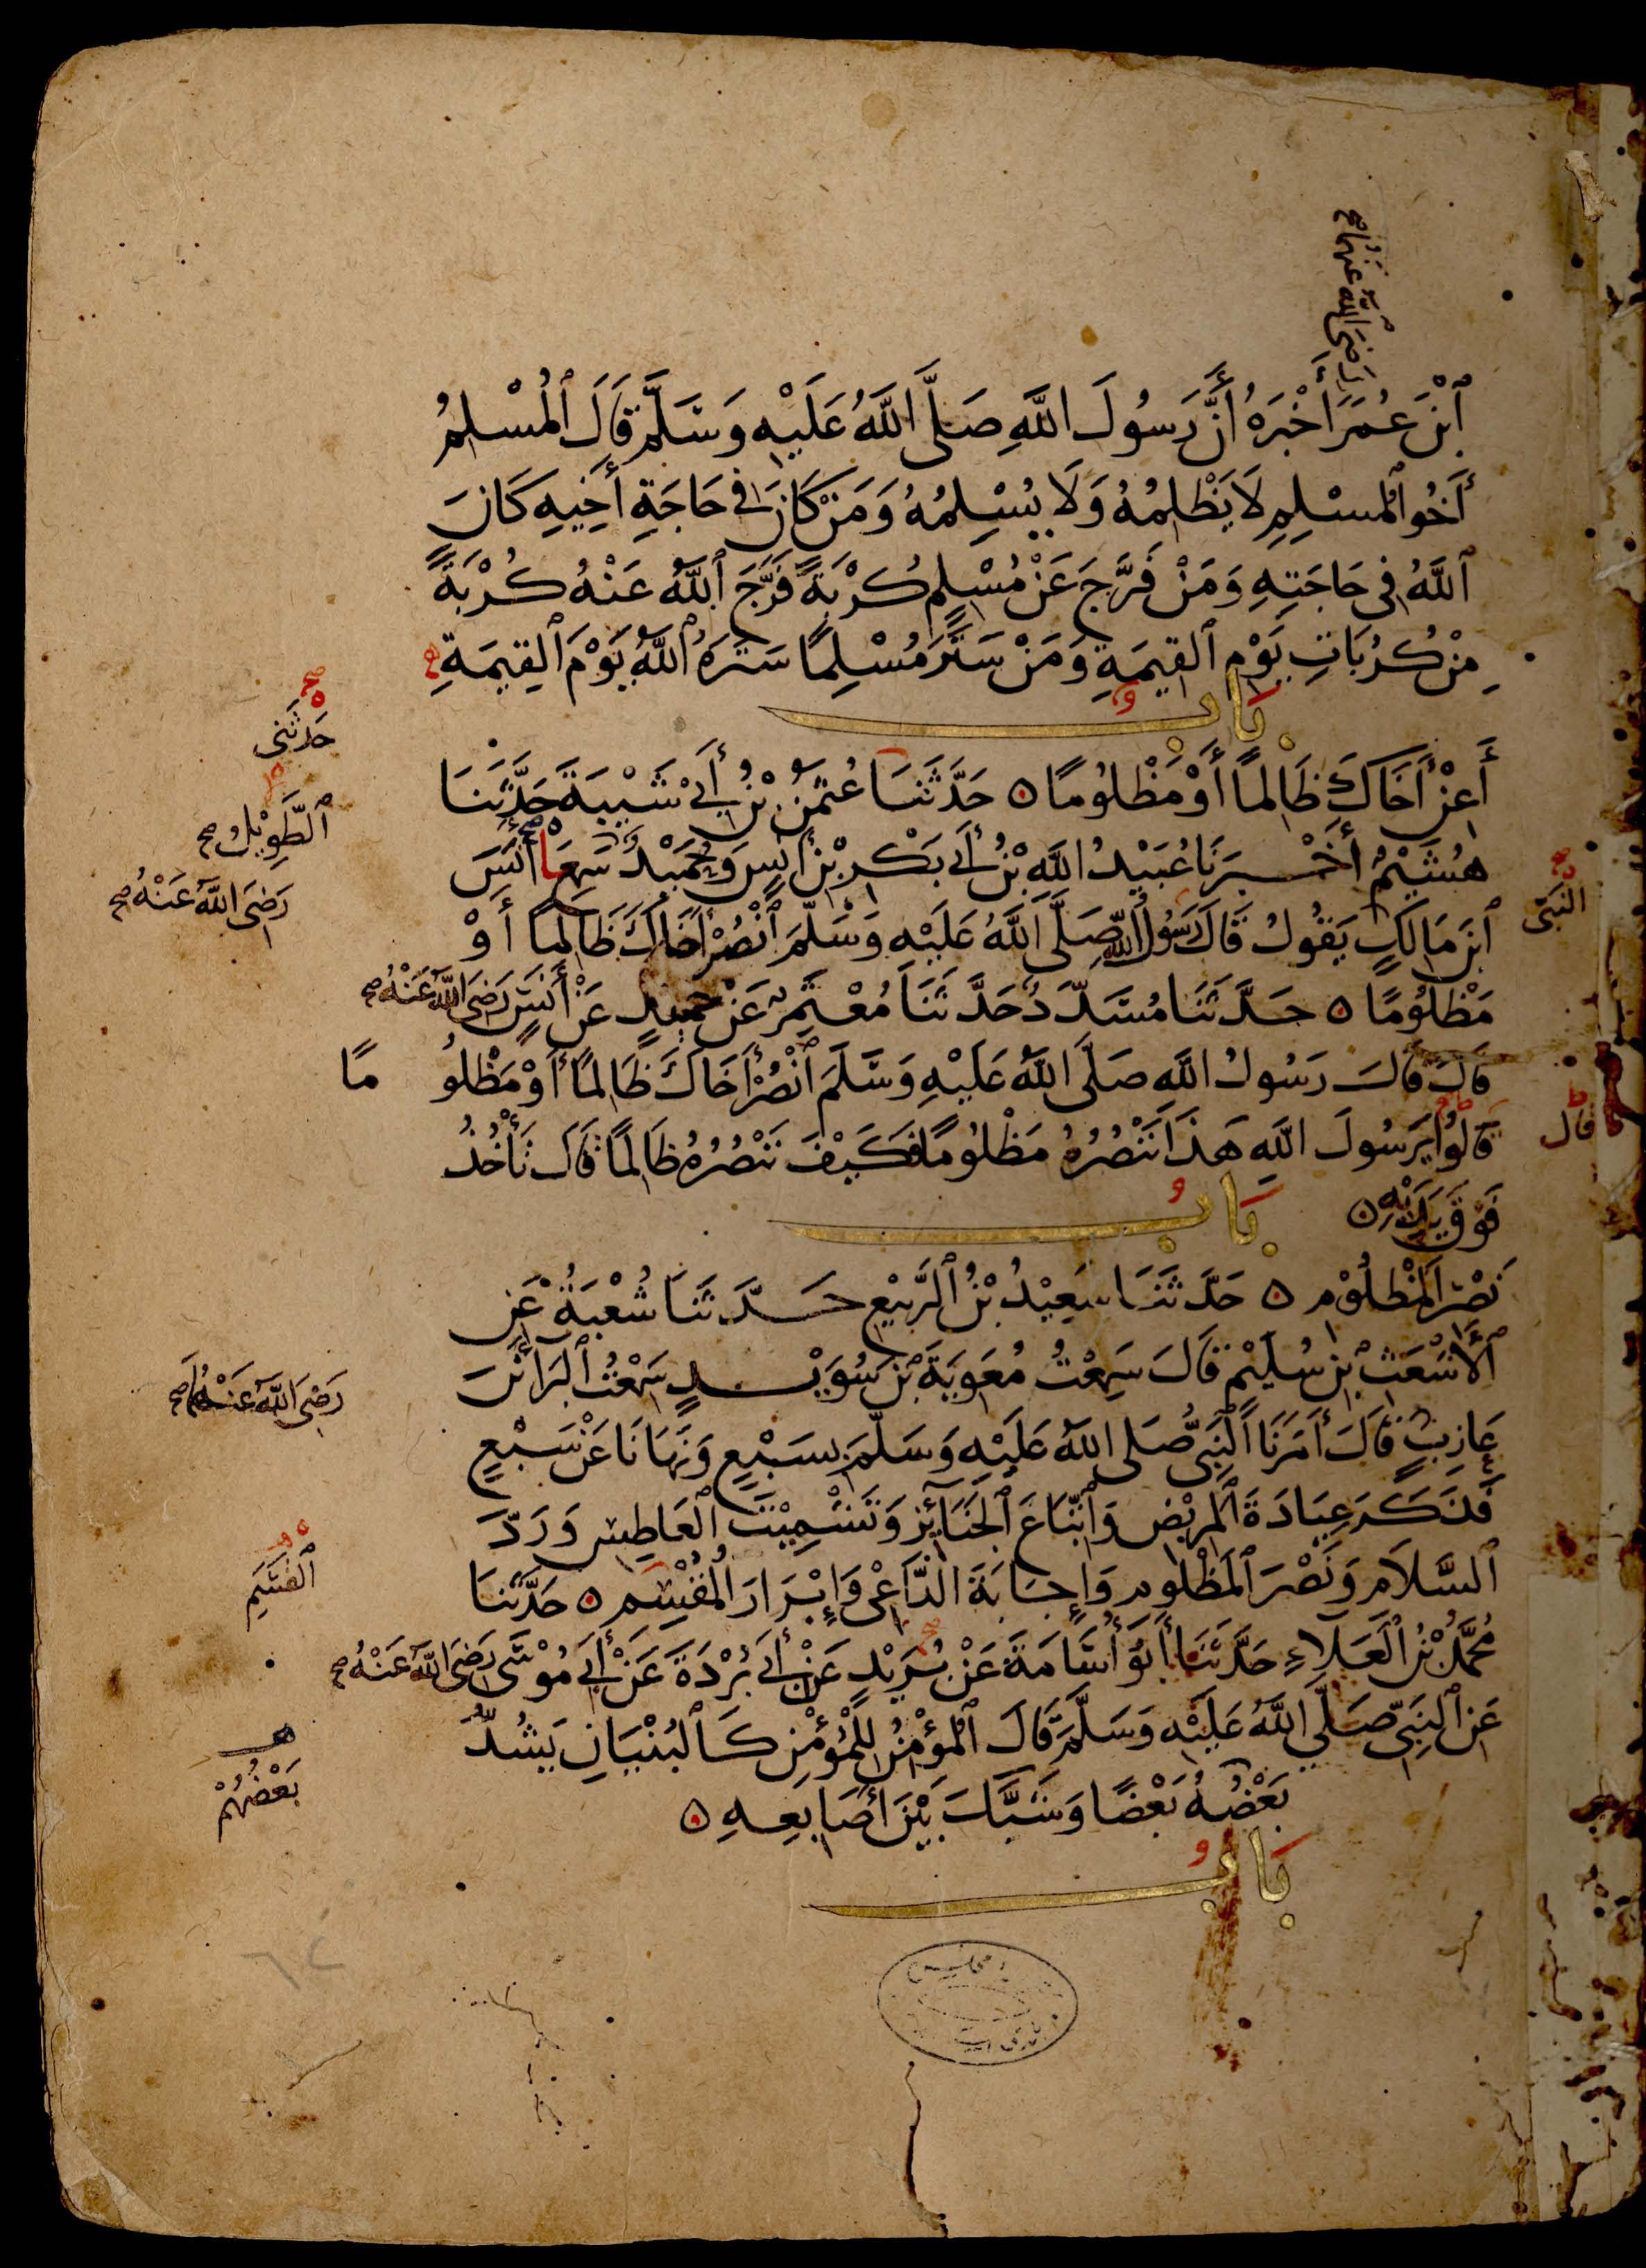 رَضِيَ اللَّهُ عَنْهُمَا صح
ٱبْنَ عُمَرَ أَخْبَرَهُ أَنَّ رَسُولَ اللَّهِ صَلَّى اللَّهُ عَلَيْهِ وَسَلَّمَ قَالَ ٱلْمُسْلِمُ
أَخُو ٱلْمُسْلِمِ لَا يَظْلِمُهُ وَلَا يُسْلِمُهُ وَمَنْ كَانَ فِي حَاجَةِ أَخِيهِ كَانَ
ٱللَّهُ فِي حَاجَتِهِ وَمَنْ فَرَّجَ عَنْ مُسْلِمٍ كُرْبَةً فَرَّجَ ٱللَّهُ عَنْهُ كُرْبَةً
مِنْ كُرُبَاتِ يَوْمِ ٱلْقِيمَةِ وَمَنْ سَتَرَ مُسْلِمًا سَتَرَهُ ٱللَّهُ يَوْمَ ٱلْقِيمَةِ
بَابُ
أَعِنْ أَخَاكَ ظَالِمًا أَوْ مَظْلُومًا ۝ حَدَّثَنَا عُثْمٰنُ بْنُ أَبِي شَيْبَةَ حَدَّثَنَا
حَدَّثَنِي
هُشَيْمٌ أَخْبَرَنَا عُبَيْدُ اللَّهِ بْنُ أَبِي بَكْرِ بْنِ أَنَسٍ وَحُمَيْدٌ سَمِعَا أَنَسَ
ٱلطَّوِيْلُ صح
ٱبْنَ مَالِكٍ يَقُولُ قَالَ رَسُولُ اللَّهِ صَلَّى اللَّهُ عَلَيْهِ وَسَلَّمَ ٱنْصُرْ أَخَاكَ ظَالِمًا أَوْ
رَضِيَ اللَّهُ عَنْهُ صح
النَّبِيُّ
مَظْلُومًا ۝ حَدَّثَنَا مُسَدَّدٌ حَدَّثَنَا مُعْتَمِرٌ عَنْ حُمَيْدٍ عَنْ أَنَسٍ رَضِيَ اللَّهُ عَنْهُ صح
قَالَ قَالَ رَسُولُ اللَّهِ صَلَّى اللَّهُ عَلَيْهِ وَسَلَّمَ ٱنْصُرْ أَخَاكَ ظَالِمًا أَوْ مَظْلُومًا
قَالُوا يَرَسُولَ اللَّهِ هَذَا نَنْصُرُهُ مَظْلُومًا فَكَيْفَ نَنْصُرُهُ ظَالِمًا قَالَ تَأْخُذُ
قال
فَوْقَ يَدَيْهِ ۝
بَابُ
نَصْرِ الْمَظْلُوْمِ ۝ حَدَّثَنَا سَعِيْدُ بْنُ ٱلرَّبِيْعِ حَدَّثَنَا شُعْبَةُ عَنِ
ٱلْأَشْعَثِ بْنِ سُلَيْمٍ قَالَ سَمِعْتُ مُعَوِيَةَ بْنَ سُوَيْدٍ سَمِعْتُ ٱلْبَرَاءَ بْنَ
رَضِيَ اللَّهُ عَنْهُمَا صح
عَازِبٍ قَالَ أَمَرَنَا ٱلنَّبِيُّ صَلَّى اللَّهُ عَلَيْهِ وَسَلَّمَ بِسَبْعٍ وَنَهَانَا عَنْ سَبْعٍ
فَذَكَرَ عِيَادَةَ ٱلْمَرِيْضِ وَٱتِّبَاعَ ٱلْجَنَائِزِ وَتَشْمِيْتَ ٱلْعَاطِسِ وَرَدَّ
ٱلسَّلَامِ وَنَصْرَ ٱلْمَظْلُومِ وَإِجَابَةَ ٱلدَّاعِي وَإِبْرَارَ ٱلْمُقْسِمِ ۝ حَدَّثَنَا
ٱلْقَسَمِ
مُحَمَّدُ بْنُ ٱلْعَلَاءِ حَدَّثَنَا أَبُو أُسَامَةَ عَنْ بُرَيْدٍ عَنْ أَبِي بُرْدَةَ عَنْ أَبِي مُوْسَى رَضِيَ اللَّهُ عَنْهُ صح
عَنِ ٱلنَّبِيِّ صَلَّى اللَّهُ عَلَيْهِ وَسَلَّمَ قَالَ ٱلْمُؤْمِنُ لِلْمُؤْمِنِ كَٱلْبُنْيَانِ يَشُدُّ
بَعْضُهُ بَعْضًا وَشَبَّكَ بَيْنَ أَصَابِعِهِ ۝
بَعْضُهُمْ
بَابُ